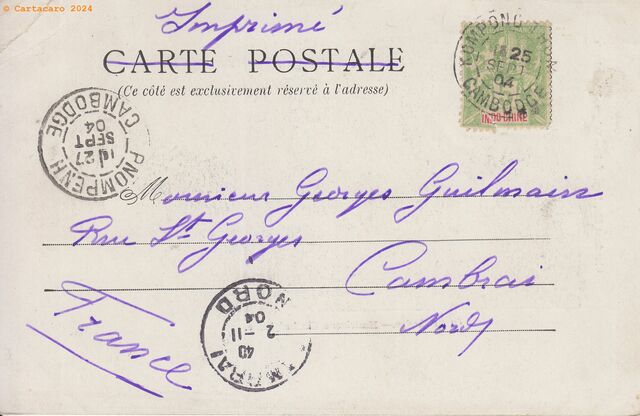 © Cartacaro 2024
Imprimé
CARTE POSTALE
(Ce côté est exclusivement réservé à l'adresse)
25
SEPT
04
CAMBODGE
INDO-CHINE
PNOMPENH
27
SEPT
04
CAMBODGE
Monsieur Georges Guilmain
Rue St Georges
Cambrai
Nord
France
NORD
04
2 -11
40